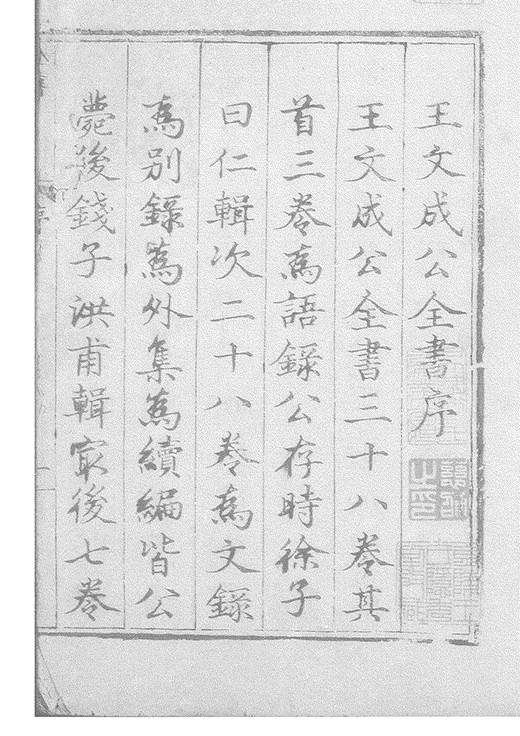 王文成公全書序
王文成公全書三十八卷其
首三卷爲語錄公存時徐子
曰仁輯次二十八卷爲文錄
爲別錄爲外集爲續編皆公
薨後錢子洪甫輯最後七卷